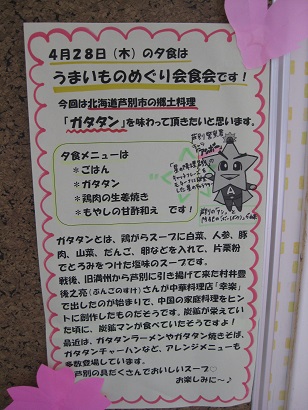 4月28日（木）の夕食は
うまいものめぐり会食会です！
今回は北海道芦別市の郷土料理
「ガタタン」を味わって頂きたいと思います。
夕食メニューは
＊ごはん
＊ガタタン
＊鶏肉の生姜焼き
＊もやしの甘酢和え　です！
ガタタンとは、鶏がらスープに白菜、人参、豚
肉、山菜、だんご、卵などを入れて、片栗粉
でとろみをつけた塩味のスープです。
戦後、旧満州から芦別に引き揚げて来た村井豊
後之亮(ぶんごのすけ)さんが中華料理店「幸楽」
で出したのが始まりで、中国の家庭料理をヒン
トに創作したものだそうです。炭鉱が栄えてい
た頃に、炭鉱マンが食べていたそうですよ！
最近は、ガタタンラーメンやガタタン焼きそば、
ガタタンチャーハンなど、アレンジメニューも
多数登場しています。
芦別の具だくさんでおいしいスープ♡
お楽しみに〜♪